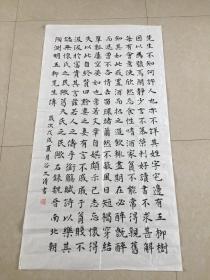 先生不知何許人也亦不詳其姓字宅邊有五柳樹
因以為號焉閑靜少言不慕榮利好讀書不求甚解
每有會意便欣然忘食性嗜酒家貧不能常得親舊
知其如此或置酒而招之造飲輒盡期在必醉既醉
而退曾不吝情去留環堵蕭然不蔽風日短褐穿結
簞瓢屢空晏如也常著文章自娛頗示己志忘懷得
失以此自終贊曰黔婁有言不戚戚于貧賤不
汲汲于富貴其言茲若人之儔乎銜觴賦詩以樂其
志無懷氏之民歟葛天氏之民歟右錄魏晉南北朝
陶淵明五柳先生傳 歲次戊戌夏月谷文清書